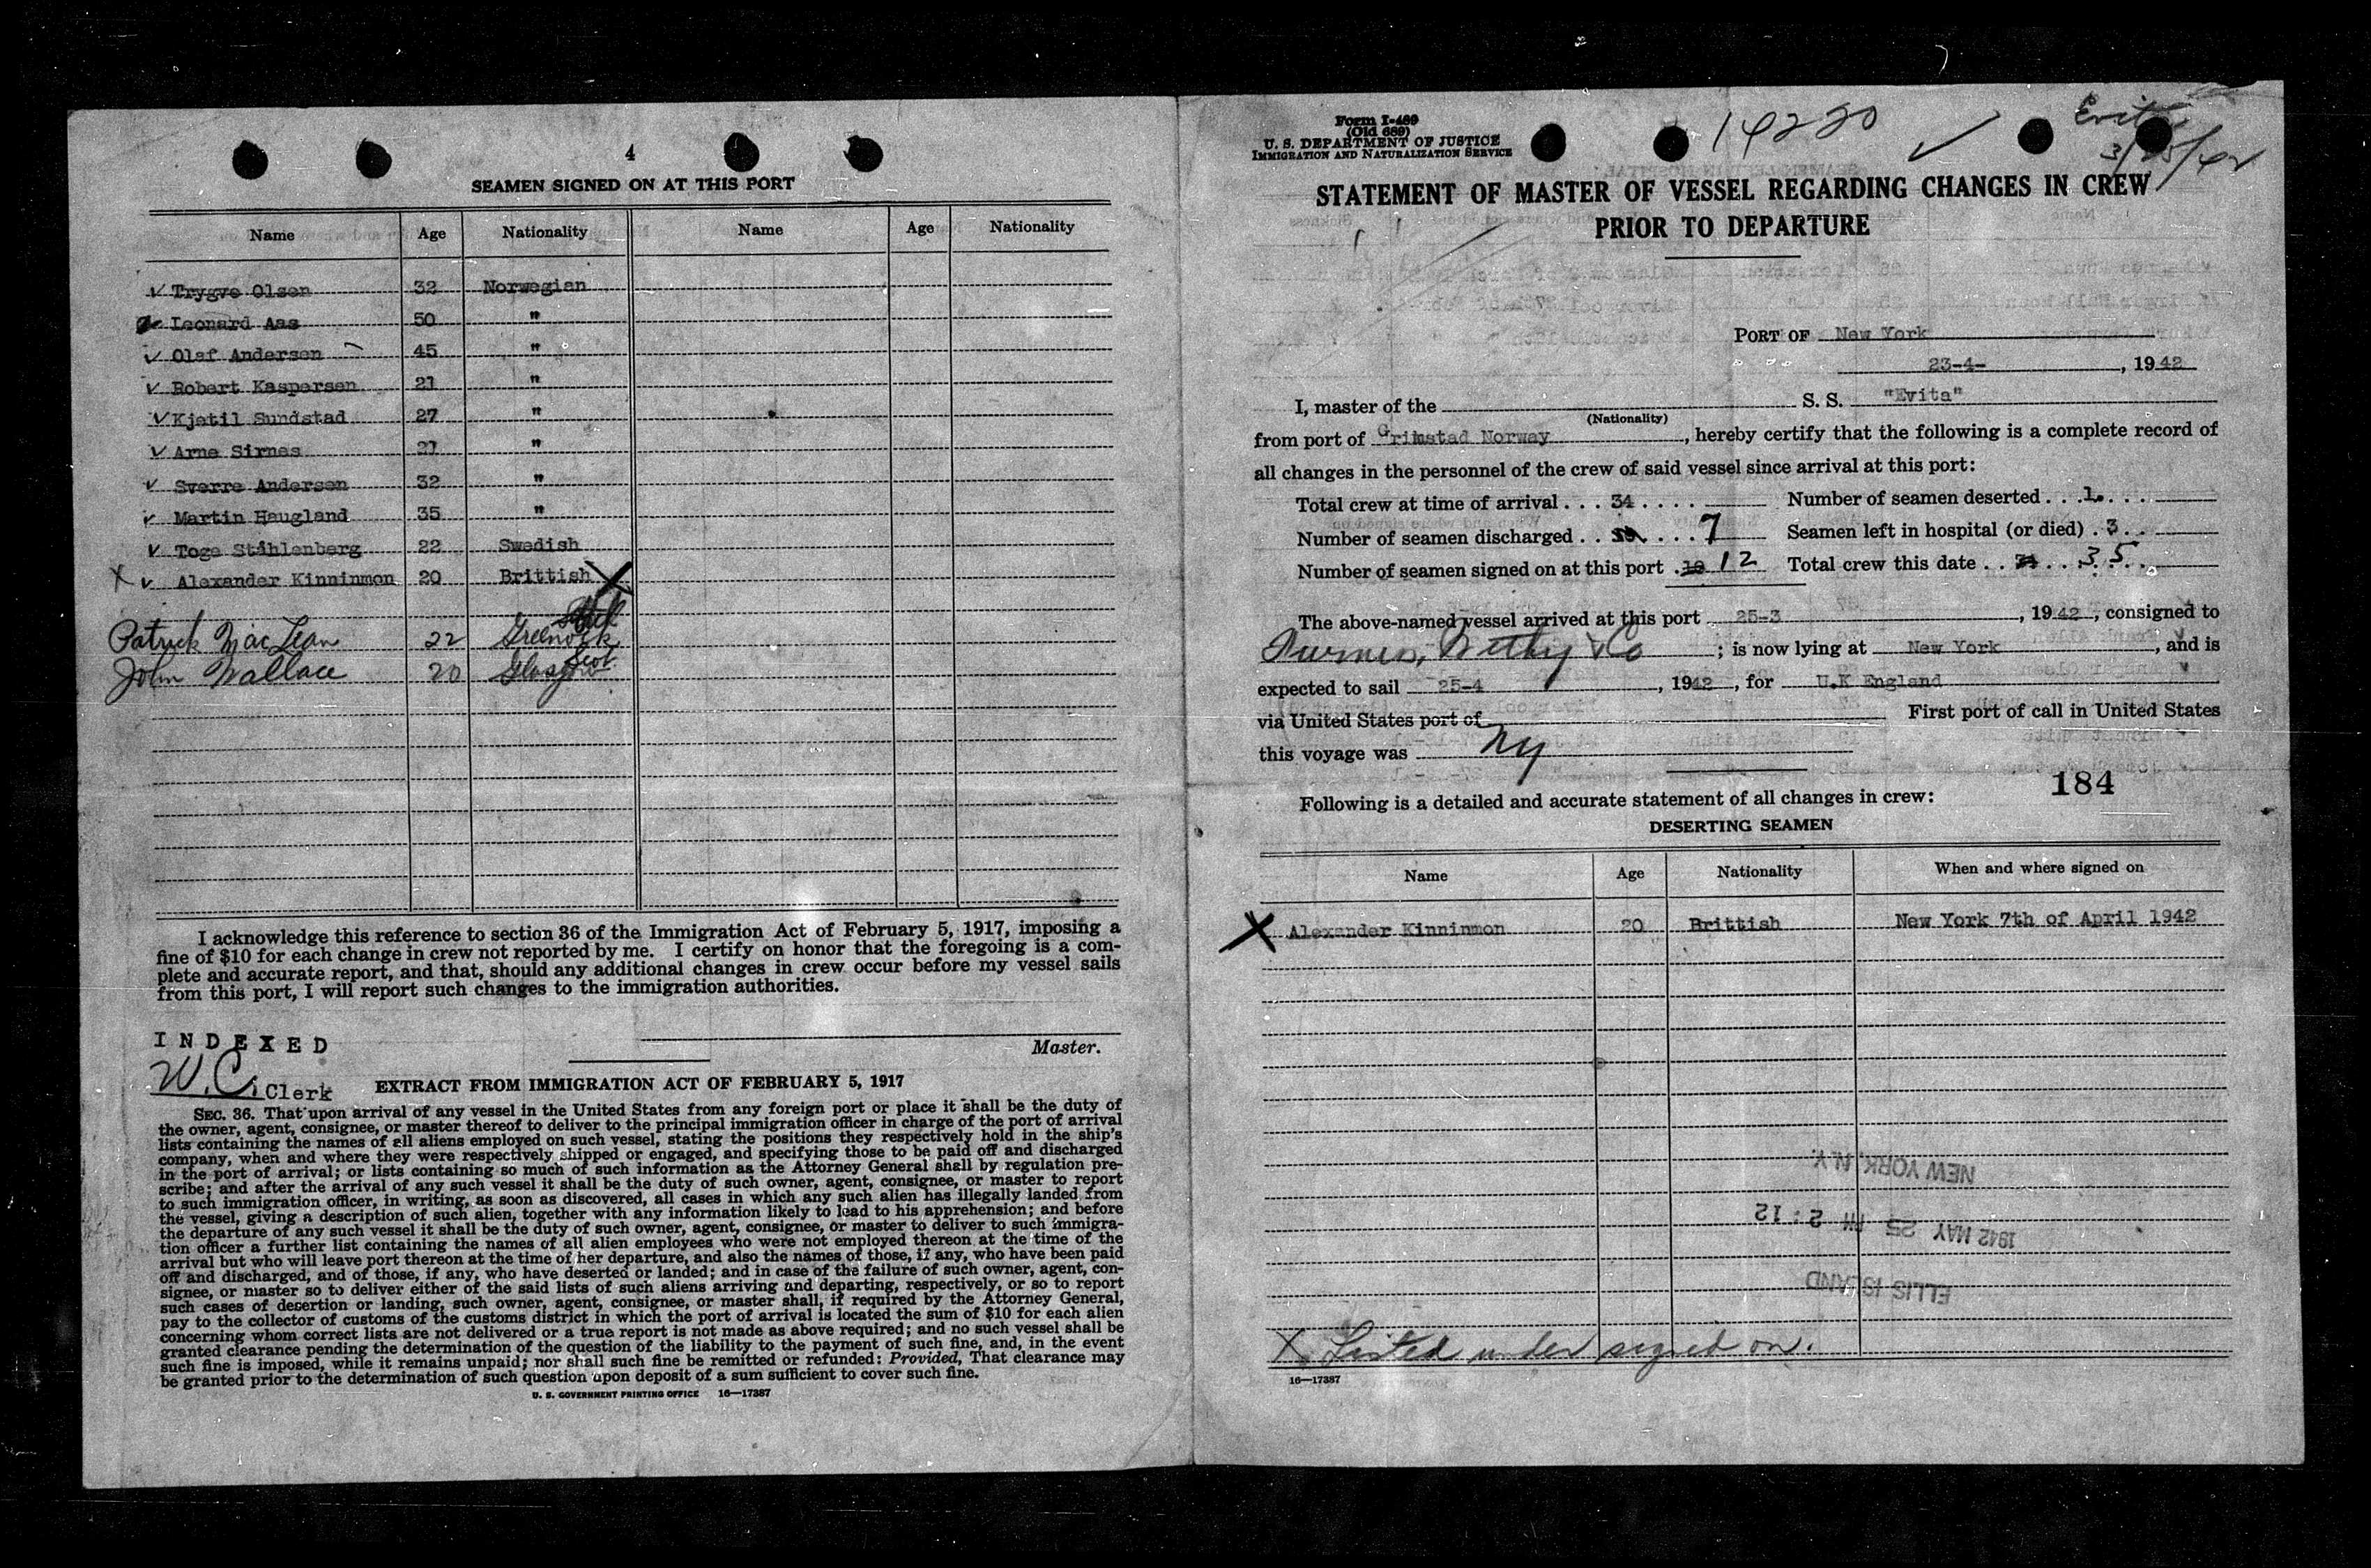 4
SEAMEN SIGNED ON AT THIS PORT
Name Age Nationality Name Age Nationality
✓ Trygve Olsen 32 Norwegian
Leonard Aas 50 "
✓ Olaf Andersen 45 "
✓ Robert Kaspersen 21 "
✓ Kjetil Sundstad 27 "
✓ Arne Sirnes 21 "
✓ Sverre Andersen 32 "
✓ Martin Haugland 35 "
✓ Toge Ståhlenberg 22 Swedish
X ✓ Alexander Kinninmon 20 Brittish X
Patrick MacLean 22 Greenock
John Wallace 20 Glasgow Scot
I acknowledge this reference to section 36 of the Immigration Act of February 5, 1917, imposing a
fine of $10 for each change in crew not reported by me. I certify on honor that the foregoing is a com-
plete and accurate report, and that, should any additional changes in crew occur before my vessel sails
from this port, I will report such changes to the immigration authorities.
INDEXED
Master.
W. C. Clerk
EXTRACT FROM IMMIGRATION ACT OF FEBRUARY 5, 1917
SEC. 36. That upon arrival of any vessel in the United States from any foreign port or place it shall be the duty of
the owner, agent, consignee, or master thereof to deliver to the principal immigration officer in charge of the port of arrival
lists containing the names of all aliens employed on such vessel, stating the positions they respectively hold in the ship's
company, when and where they were respectively shipped or engaged, and specifying those to be paid off and discharged
in the port of arrival; or lists containing so much of such information as the Attorney General shall by regulation pre-
scribe; and after the arrival of any such vessel it shall be the duty of such owner, agent, consignee, or master to report
to such immigration officer, in writing, as soon as discovered, all cases in which any such alien has illegally landed from
the vessel, giving a description of such alien, together with any information likely to lead to his apprehension; and before
the departure of any such vessel it shall be the duty of such owner, agent, consignee, or master to deliver to such immigra-
tion officer a further list containing the names of all alien employees who were not employed thereon at the time of the
arrival but who will leave port thereon at the time of her departure, and also the names of those, if any, who have been paid
off and discharged, and of those, if any, who have deserted or landed; and in case of the failure of such owner, agent, con-
signee, or master so to deliver either of the said lists of such aliens arriving and departing, respectively, or so to report
such cases of desertion or landing, such owner, agent, consignee, or master shall, if required by the Attorney General,
pay to the collector of customs of the customs district in which the port of arrival is located the sum of $10 for each alien
concerning whom correct lists are not delivered or a true report is not made as above required; and no such vessel shall be
granted clearance pending the determination of the question of the liability to the payment of such fine, and, in the event
such fine is imposed, while it remains unpaid; nor shall such fine be remitted or refunded: Provided, That clearance may
be granted prior to the determination of such question upon deposit of a sum sufficient to cover such fine.
U. S. GOVERNMENT PRINTING OFFICE 16—17387
Form I-489
(Old 689)
U. S. DEPARTMENT OF JUSTICE
IMMIGRATION AND NATURALIZATION SERVICE
14220 ✓
Evita
3/25/42
STATEMENT OF MASTER OF VESSEL REGARDING CHANGES IN CREW
PRIOR TO DEPARTURE
PORT OF New York
23-4-, 1942
I, master of the S. S. "Evita"
(Nationality)
from port of Grimstad Norway, hereby certify that the following is a complete record of
all changes in the personnel of the crew of said vessel since arrival at this port:
Total crew at time of arrival . . . 34 . . . . Number of seamen deserted . . . 1. . . .
Number of seamen discharged . . . . . 7 Seamen left in hospital (or died) . 3 . .
Number of seamen signed on at this port . 10 12 Total crew this date . . . . 35
The above-named vessel arrived at this port 25-3, 1942, consigned to
Furness, Withy & Co; is now lying at New York, and is
expected to sail 25-4, 1942, for U.K England
via United States port of First port of call in United States
this voyage was NY
184
Following is a detailed and accurate statement of all changes in crew:
DESERTING SEAMEN
Name Age Nationality When and where signed on
X Alexander Kinninmon 20 Brittish New York 7th of April 1942
NEW YORK, N.Y.
1942 MAY 25 PM 2:12
ELLIS ISLAND
X Listed under signed on.
16—17387